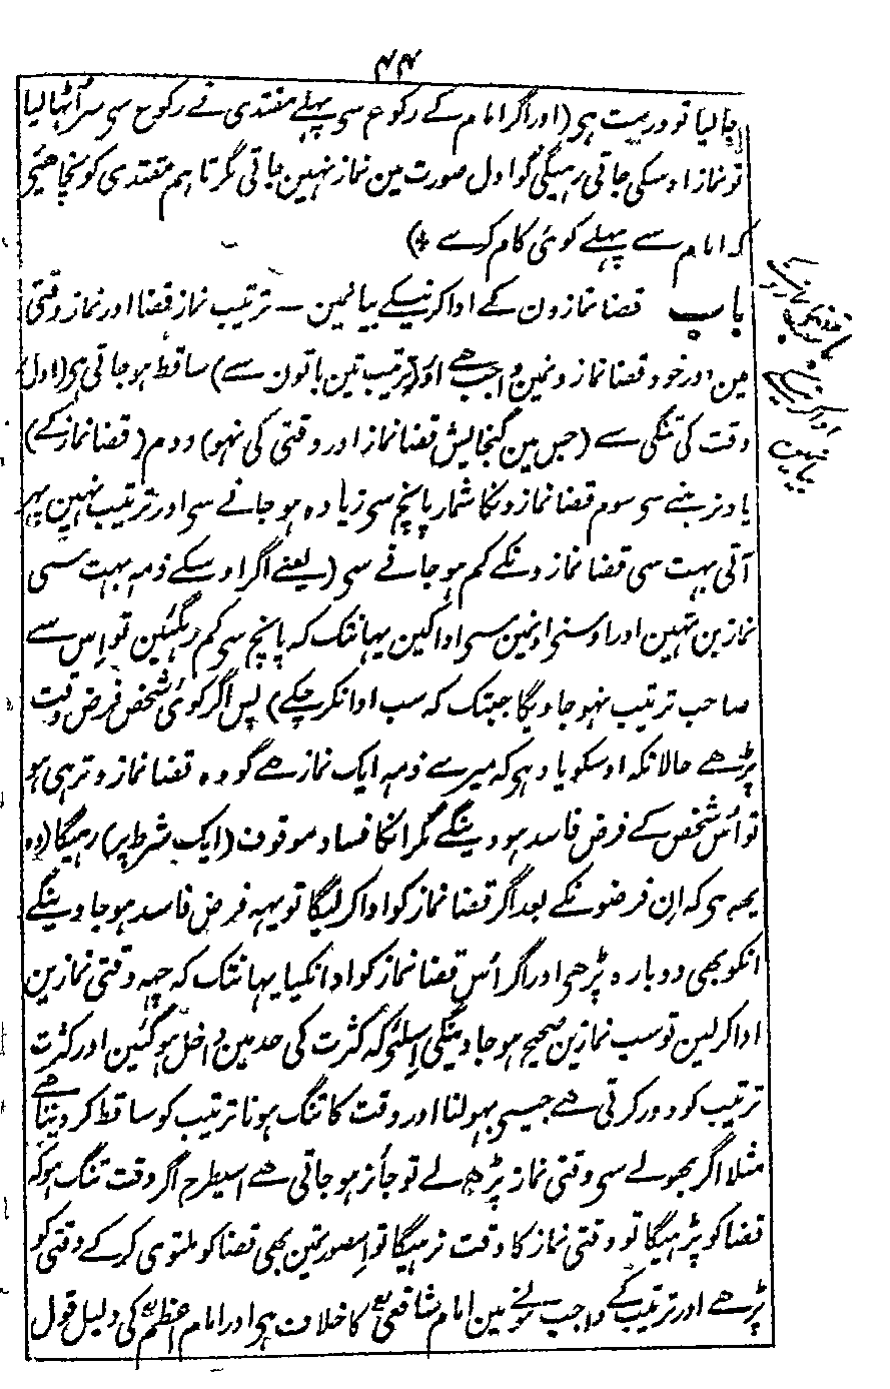 ۴۴
جا لیا تو درست ہی (اور اگر امام کے رکوع سی پہلے مقتدی نے رکوع سی سر اُٹھا لیا
تو نماز اوسکی جاتی رہیگی گو اول صورت مین نماز نہین جاتی مگر تا ہم مقتدی کو نچاھئی
کہ امام سے پہلے کوئی کام کرے ؞)
باب قضا نمازون کے ادا کرنیکے بیانمین — ترتیب نماز قضا اور نماز وقتی
مین اور خود قضا نماز ونمین واجب ھے اور (ترتیب تین باتون سے) ساقط ہو جاتی ہی (اول)
وقت کی تنگی سے (جس مین گنجایش قضا نماز اور وقتی کی نہو) دوم (قضا نماز کے)
یاد نرہنے سی سوم قضا نماز ونکا شمار پانچ سی زیادہ ہو جانے سی اور ترتیب نہین پہر
آتی بہت سی قضا نماز ونکے کم ہو جانے سی (یعنے اگر اوسکے ذمہ بہت سی
نمازین تہین اور اوسنی اونمین سی ادا کین یہانتک کہ پانچ سی کم رہگئین تو اس سے
صاحب ترتیب نہو جاویگا جبتک کہ سب ادا نکر چکے) پس اگر کوئی شخص فرض وقت
پڑھے حالانکہ اوسکو یاد ہی کہ میرے ذمہ ایک نماز ھے گو وہ قضا نماز وتر ہی ہو
تو اُس شخص کے فرض فاسد ہو وینگے مگر انکا فساد موقوف (ایک شرط پر) رہیگا (وہ
یہہ ہی کہ ان فرضونکے بعد اگر قضا نماز کو ادا کر لیگا تو یہہ فرض فاسد ہو جاوینگے
انکو بھی دوبارہ پڑھی اور اگر اُس قضا نماز کو ادا نکیا یہانتک کہ چہہ وقتی نمازین
ادا کر لین تو سب نمازین صحیح ہو جاوینگی اسلئی کہ کثرت کی حد مین داخل ہو گئین اور کثرت
ترتیب کو دور کرتی ھے جیسی بہولنا اور وقت کا تنگ ہونا ترتیب کو ساقط کر دیتا ھے
مثلا اگر بھولے سی وقتی نماز پڑھ لے تو جائز ہو جاتی ھے اسیطرح اگر وقت تنگ ہو کہ
قضا کو پڑہیگا تو وقتی نماز کا وقت نرہیگا تو اِصورتمین بھی قضا کو ملتوی کر کے وقتی کو
پڑھے اور ترتیب کے واجب ہونے مین امام شافعیؒ کا خلاف ہی اور امام اعظمؒ کی دلیل قول
ادا کرنیکے
بیانمین